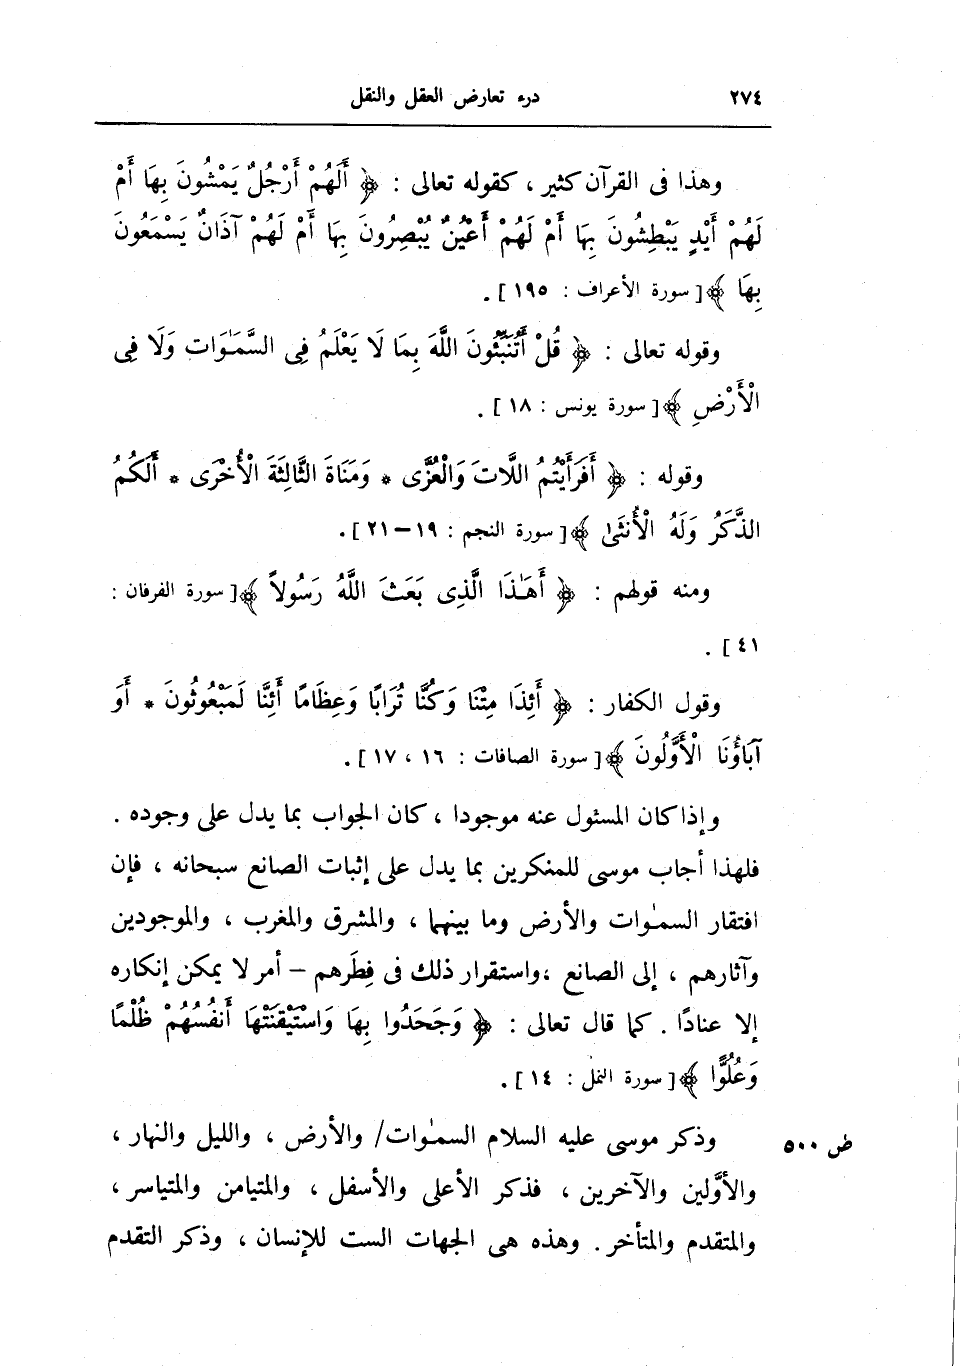 ٢٧٤ درء تعارض العقل والنقل
وهذا فى القرآن كثير ، كقوله تعالى : ﴿ أَلَهُمْ أَرْجُلٌ يَمْشُونَ بِهَا أَمْ
لَهُمْ أَيْدٍ يَبْطِشُونَ بِهَا أَمْ لَهُمْ أَعْيُنٌ يُبْصِرُونَ بِهَا أَمْ لَهُمْ آذَانٌ يَسْمَعُونَ
بِهَا ﴾ [ سورة الأعراف : ١٩٥ ] .
وقوله تعالى : ﴿ قُلْ أَتُنَبِّئُونَ اللَّهَ بِمَا لَا يَعْلَمُ فِى السَّمَـٰوَات وَلَا فِى
الْأَرْضِ ﴾ [ سورة يونس : ١٨ ] .
وقوله : ﴿ أَفَرَأَيْتُمُ اللَّاتَ وَالْعُزَّى * وَمَنَاةَ الثَّالِثَةَ الْأُخْرَى * أَلَكُمُ
الذَّكَرُ وَلَهُ الْأُنثَىٰ ﴾ [ سورة النجم : ١٩ – ٢١ ] .
ومنه قولهم : ﴿ أَهَـٰذَا الَّذِى بَعَثَ اللَّهُ رَسُولاً ﴾ [ سورة الفرقان :
٤١ ] .
وقول الكفار : ﴿ أَئِذَا مِتْنَا وَكُنَّا تُرَابًا وَعِظَامًا أَئِنَّا لَمَبْعُوثُونَ * أَوَ
آبَاؤُنَا الْأَوَّلُونَ ﴾ [ سورة الصافات : ١٦ ، ١٧ ] .
وإذا كان المسئول عنه موجودا ، كان الجواب بما يدل على وجوده .
فلهذا أجاب موسى للمنكرين بما يدل على إثبات الصانع سبحانه ، فإن
افتقار السمـٰوات والأرض وما بينهما ، والمشرق والمغرب ، والموجودين
وآثارهم ، إلى الصانع ، واستقرار ذلك فى فِطَرهم – أمر لا يمكن إنكاره
إلا عنادًا . كما قال تعالى : ﴿ وَجَحَدُوا بِهَا وَاسْتَيْقَنَتْهَا أَنفُسُهُمْ ظُلْمًا
وَعُلُوًّا ﴾ [ سورة النمل : ١٤ ] .
وذكر موسى عليه السلام السمـٰوات/ والأرض ، والليل والنهار ، ض ٥٠٠
والأوَّلين والآخرين ، فذكر الأعلى والأسفل ، والمتيامن والمتياسر ،
والمتقدم والمتأخر . وهذه هى الجهات الست للإنسان ، وذكر التقدم